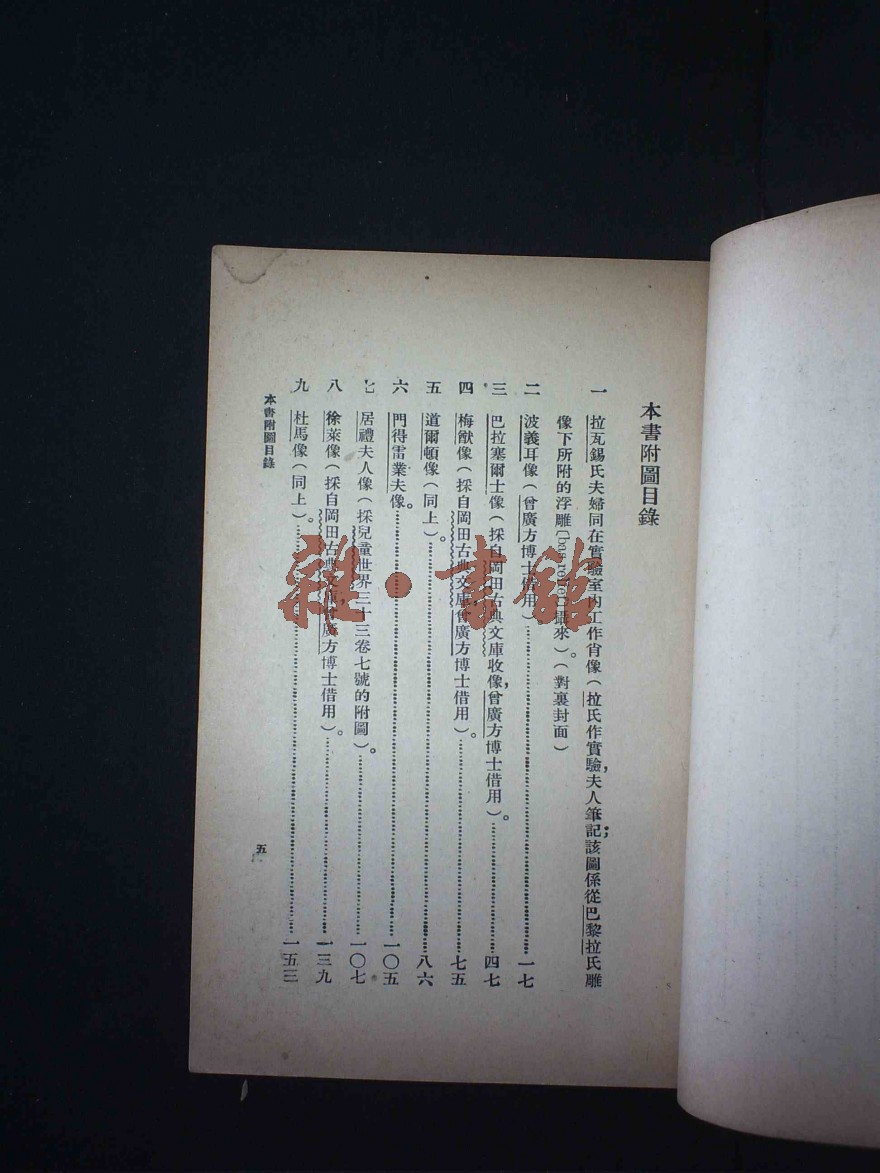 本書附圖目錄
一 拉瓦錫氏夫婦同在實驗室內工作肖像(拉氏作實驗,夫人筆記;該圖係從巴黎拉氏雕
像下所附的浮雕(bas relief)攝來)。(對裏封面)
二 波義耳像(曾廣方博士借用)。……一七
三 巴拉塞爾士像(採自岡田古典文庫收像,曾廣方博士借用)。……四七
四 梅猷像(採自岡田古典文庫,曾廣方博士借用)。……七五
五 道爾頓像(同上)。……八六
六 門得雷業夫像。……一〇五
七 居禮夫人像(採兒童世界三十三卷七號的附圖)。……一〇七
八 徐萊像(採自岡田古典文庫,曾廣方博士借用)。……一三九
九 杜馬像(同上)。……一五三
本書附圖目錄
五
雜·書館